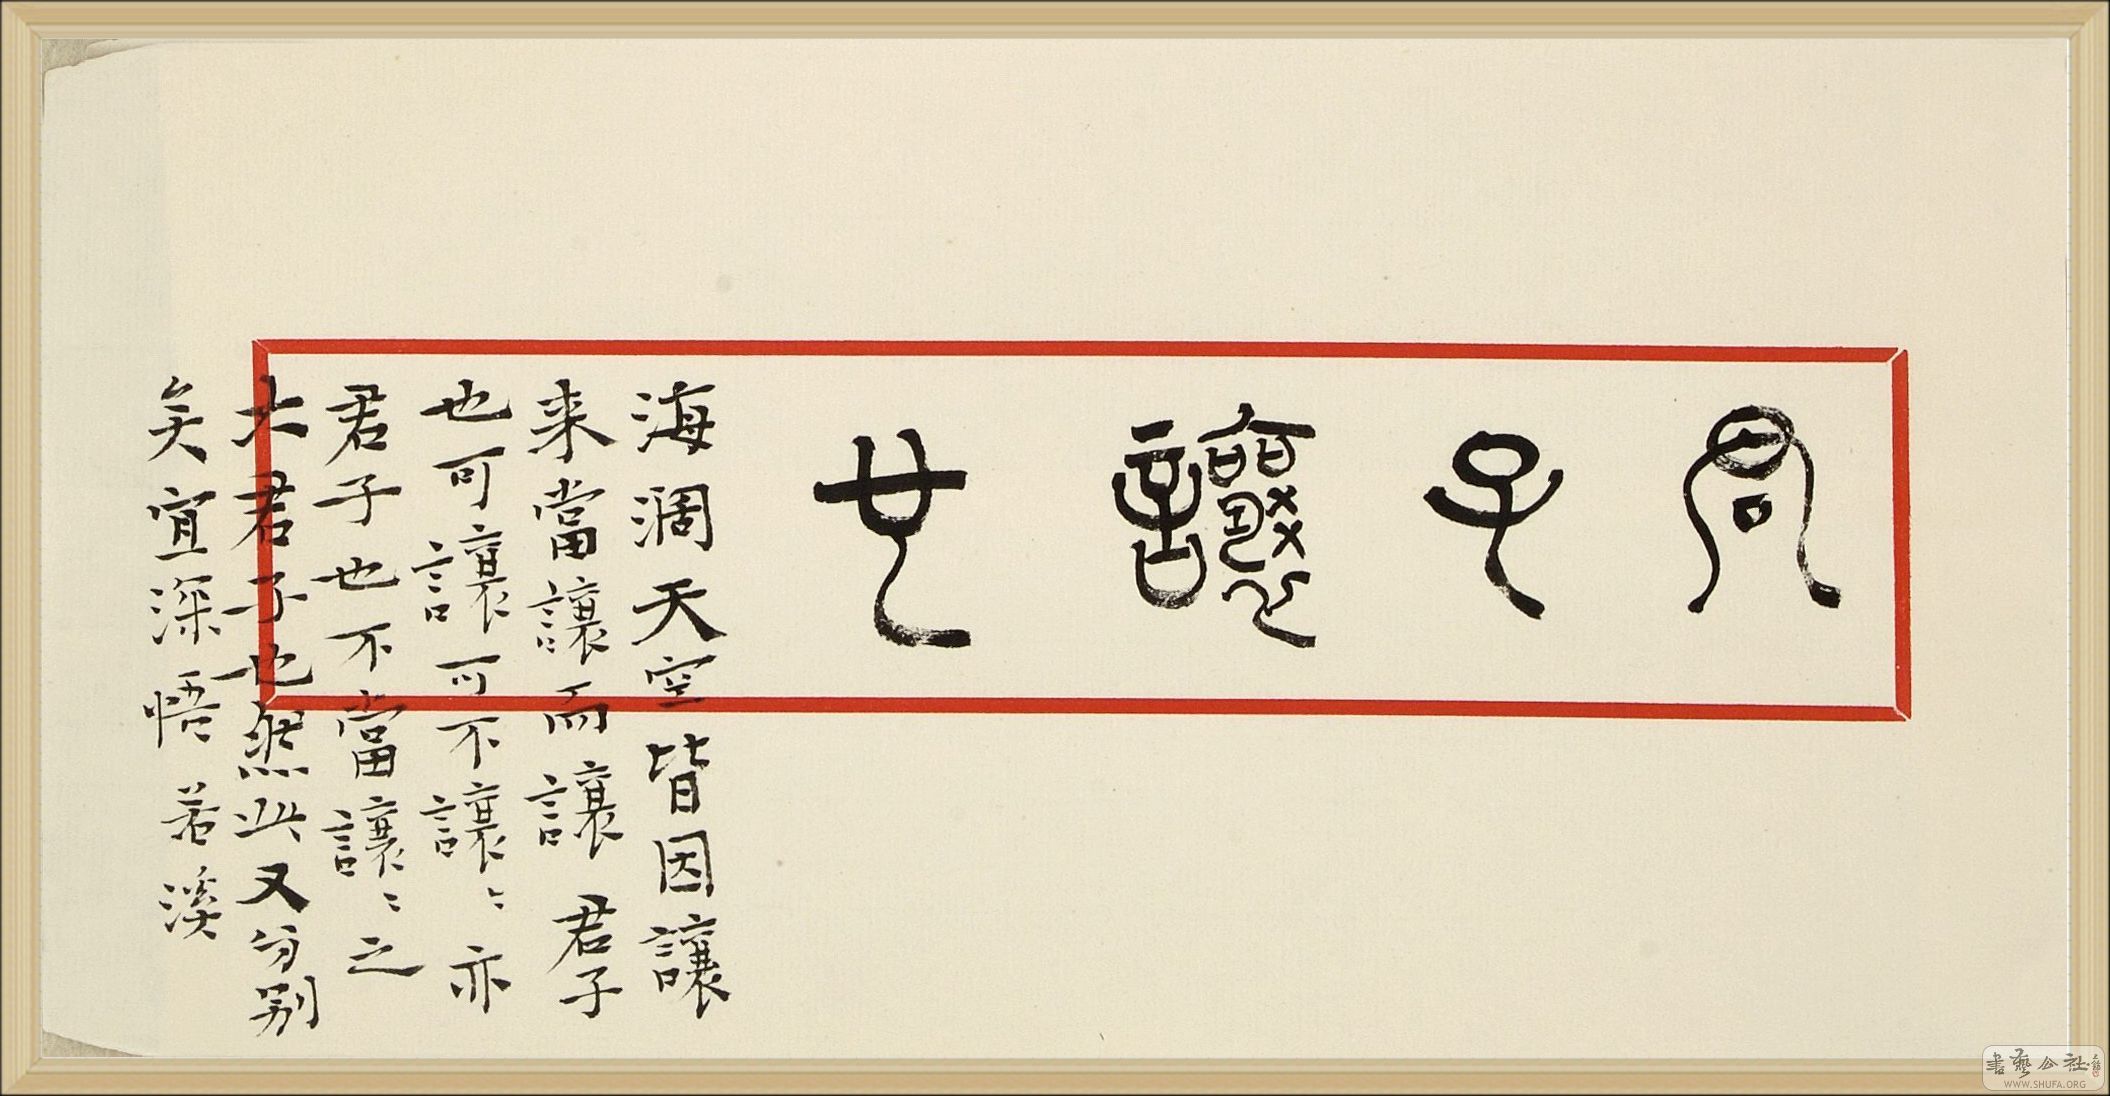 君子讓也
海濶天空皆因讓
来當讓而讓君子
也可讓可不讓〻亦
君子也不當讓〻之
大君子也然此又分别
矣宜深悟若溪
書藝公社
WWW.SHUFA.ORG